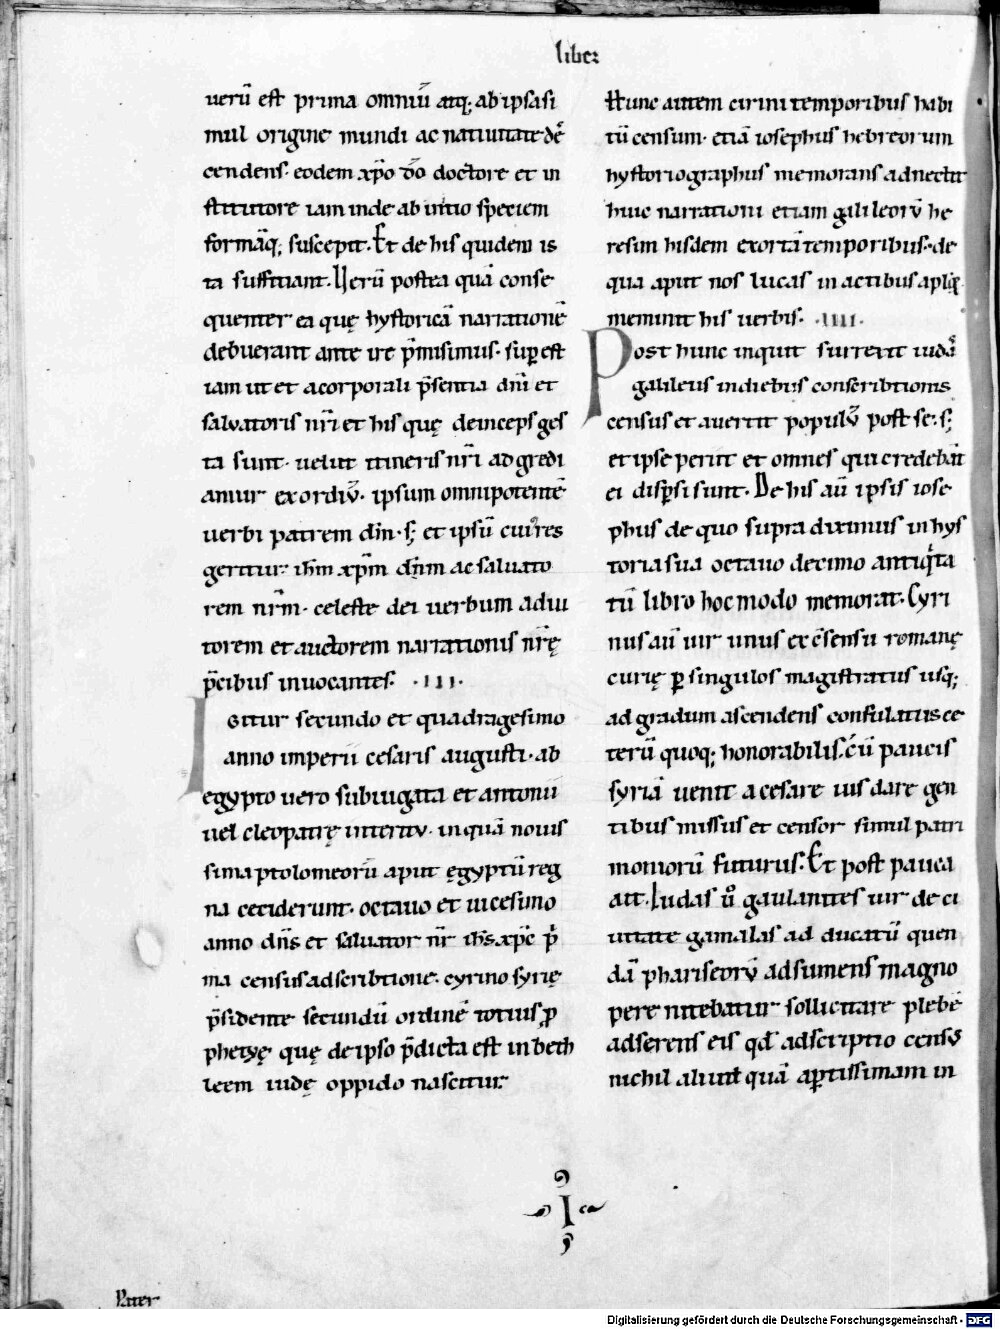 liber
uerū est prima omniū atq; ab ipsa si
mul origine mundi ac natiuitate dē
cendens. eodem xp̄o dō doctore et in
stitutore iam inde ab initio speciem
formāq; suscepit. Et de his quidem is
ta sufficiant. Uerū postea quā conse
quenter ea quę hystoricā narrationē
debuerant ante ire p̄misimus. sup̱ est
iam ut et a corporali p̄sentia dn̄i et
saluatoris nr̄i et his quę deinceps ges
ta sunt. uelut itineris nr̄i ad gredi
amur exordiū. ipsum omnipotentē
uerbi patrem dm̄. s; et ipsū cui res
geritur ihm̄ xpm̄ dn̄m ac saluato
rem nr̄m. celeste dei uerbum adiu
torem et auctorem narrationis nr̄ę
p̄cibus inuocantes. .III.
Igitur secundo et quadragesimo
anno imperii cesaris augusti. ab
egypto uero subiugata et antonii
uel cleopatrę interitu. in quā nouis
sima ptolomeorū aput ęgyptū reg
na ceciderunt. octauo et uicesimo
anno dn̄s et saluator nr̄ ih̄s xp̄c p̄
ma census adscribtione. cyrino syrię
p̄sidente secundū ordinē totius ꝓ
phetyę quę de ipso p̄dicta est in beth
leem iudę oppido nascitur.
Hunc autem cirini temporibus habi
tū censum. etiā iosephus hebreorum
hystoriographus memorans adnectit
huic narrationi etiam galileorū he
resim hisdem exortā temporibus. de
qua aput nos lucas in actibus aplꝝ
meminit his uerbis. .IIII.
Post hunc inquit surrexit iudā
galileus in diebus conscribtionis
census et auertit populū post se. s;
et ipse periit et omnes qui credebāt
ei disꝑsi sunt. De his aū ipsis iose
phus de quo supra diximus in hys
toria sua octauo decimo antiqita
tū libro hoc modo memorat. Cyri
nus aū uir unus ex c̄sensu romanę
curię ꝑ singulos magistratus usq;
ad gradum ascendens consulatus ce
terū quoq; honorabilis. cū paucis
syriā uenit a cesare iuis dare gen
tibus missus et censor simul patri
moniorū futurus. Et post pauca
ait. Iudas ū gaulanites uir de ci
uitate gamalas ad ducatū quen
dā phariseorū adsumens magno
pere nitebatur sollicitare plebē
adserens eis qd̄ adscriptio censꝰ
nichil aliud quā aꝑtissimam in
I
Pater
Digitalisierung gefördert durch die Deutsche Forschungsgemeinschaft - DFG